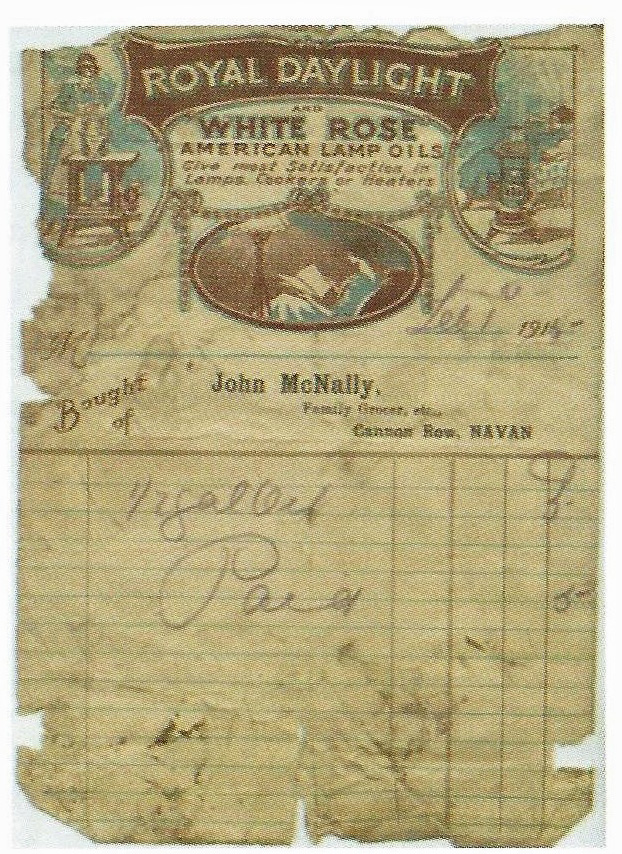 ROYAL DAYLIGHT
AND
WHITE ROSE
AMERICAN LAMP OILS
Give most Satisfaction in
Lamps. Cookers or Heaters
191
M
Bought of
John McNally,
Family Grocer, etc.,
Cannon Row, NAVAN
Paid